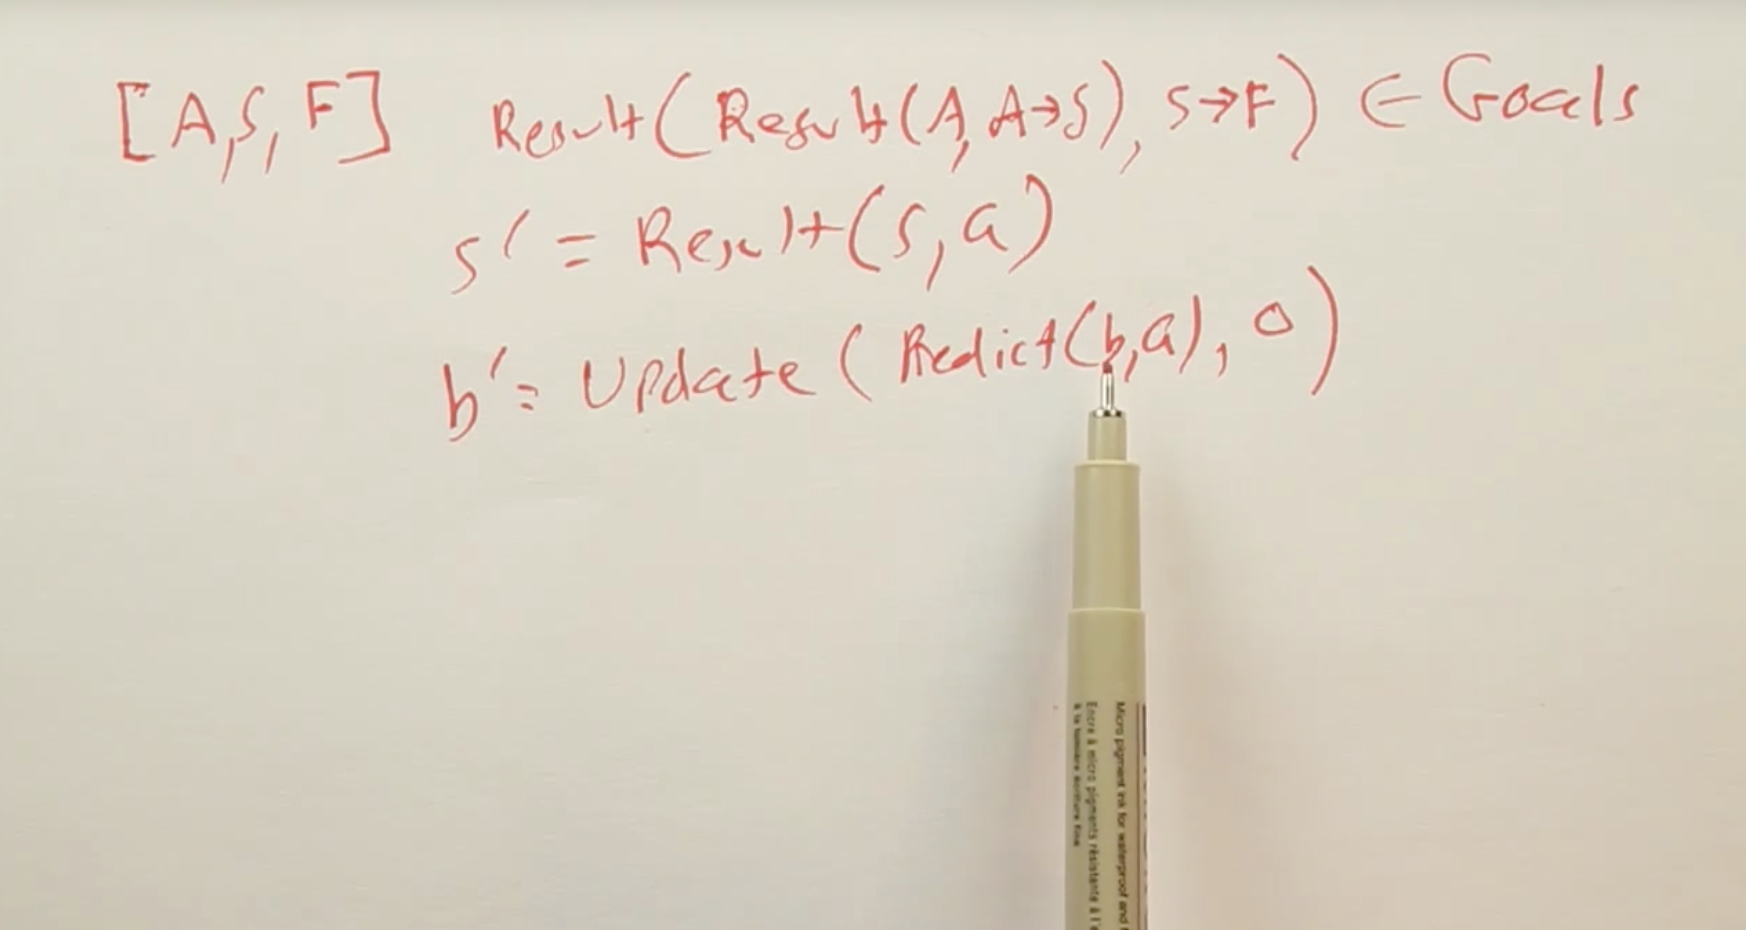 [A, S, F] Result(Result(A, A→S), S→F) ∈ Goals
s' = Result(s, a)
b' = Update(Predict(b, a), o)
Micro pigment ink for waterproof and
Encre à micro pigments résistante à l'e
à la lumière écriture fine